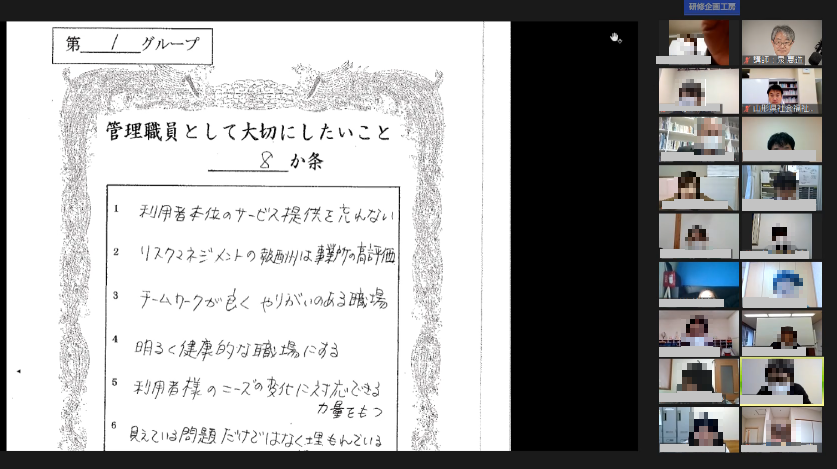 研修企画工房
第 1 グループ
管理職員として大切にしたいこと
8 か条
1 利用者本位のサービス提供を忘れない
2 リスクマネジメントの は事業所の高評価
3 チームワークが良く やりがいのある職場
4 明るく健康的な職場にする
5 利用者様のニーズの変化に対応できる
力量をもつ
6 見えている問題だけではなく埋もれている
講師：
山形県社会福祉